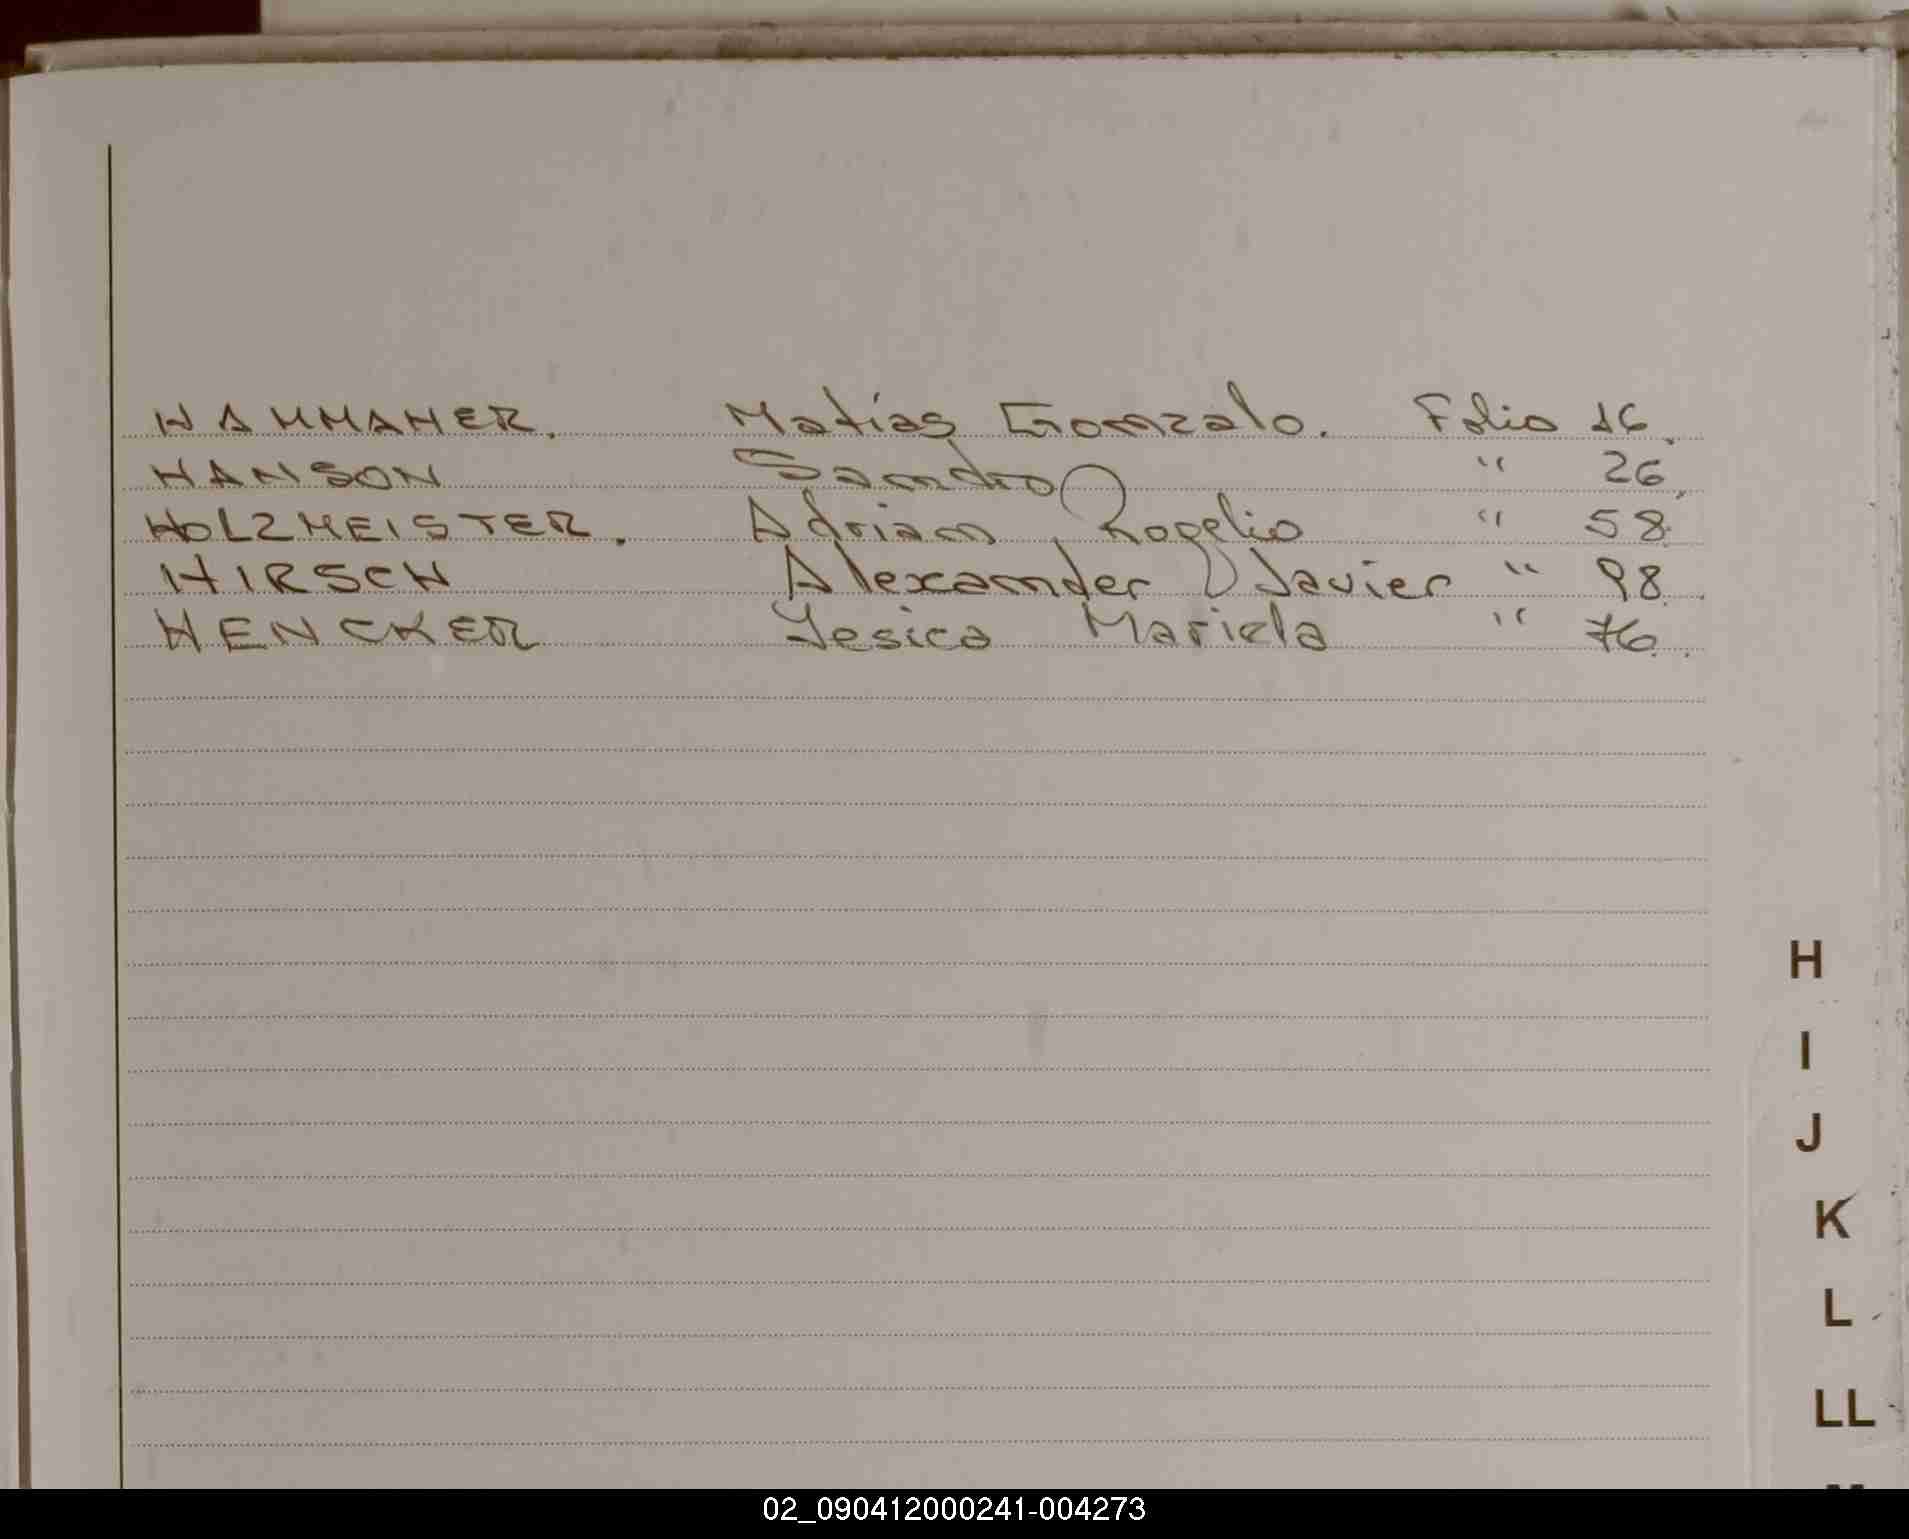 HAMMAHER. Matías Gonzalo. Folio 16.
HANSON Sandro " 26.
HOLZMEISTER. Adrian Rogelio " 58.
HIRSCH Alexander Javier " 98.
HENCKER Yesica Mariela " 76.
H
I
J
K
L
LL
02_090412000241-004273